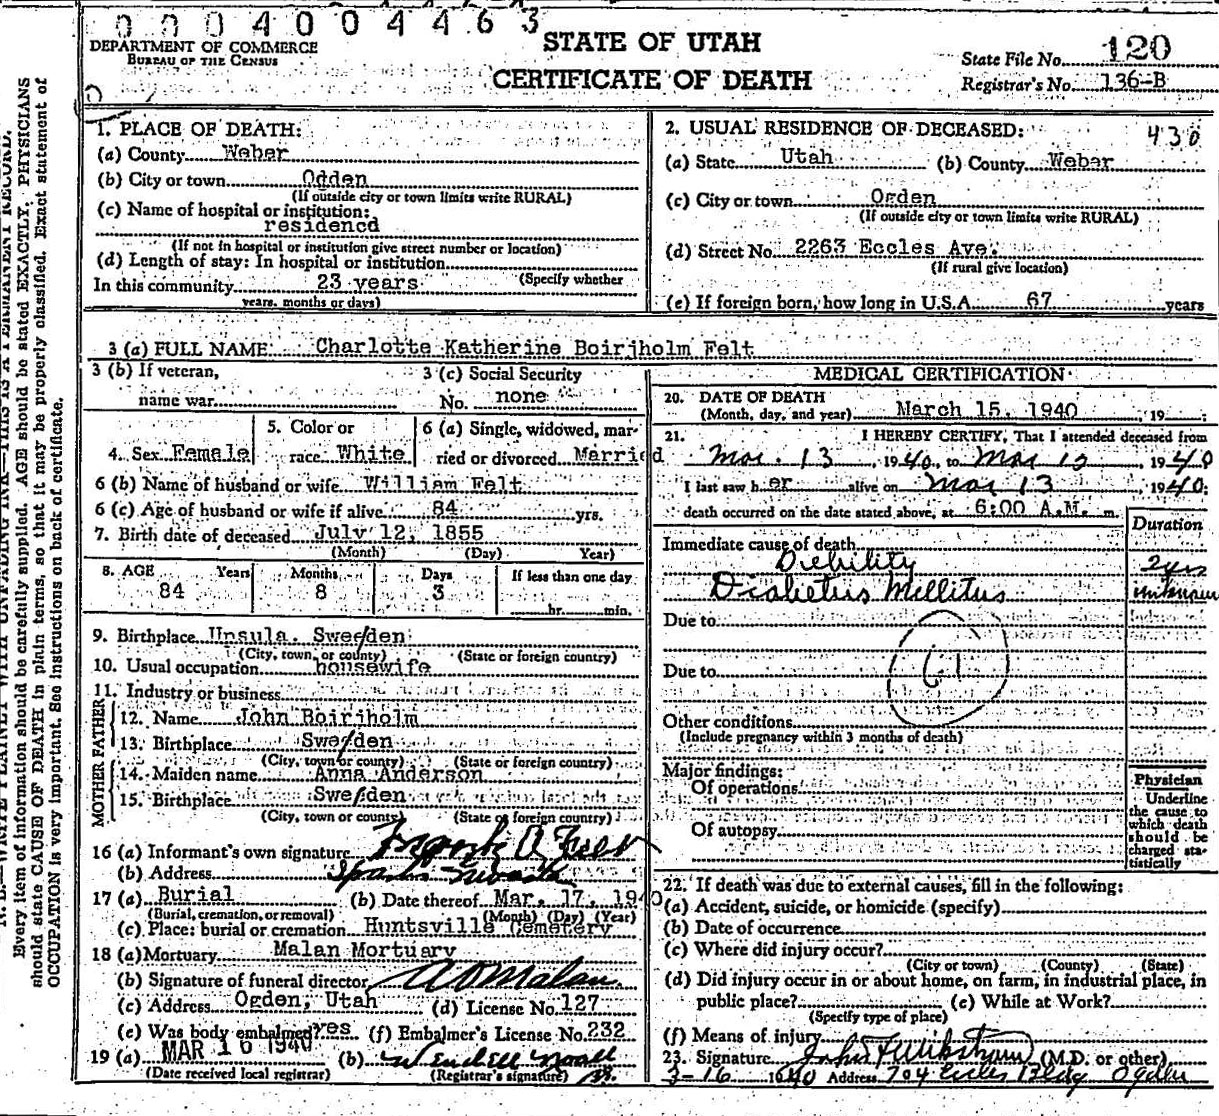 0 0 0 4 0 0 4 4 6 3
DEPARTMENT OF COMMERCE
BUREAU OF THE CENSUS
STATE OF UTAH
CERTIFICATE OF DEATH
State File No. 120
Registrar's No. 136-B
N. B.—WRITE PLAINLY WITH UNFADING INK—THIS IS A PERMANENT RECORD.
Every item of information should be carefully supplied. AGE should be stated EXACTLY. PHYSICIANS
should state CAUSE OF DEATH in plain terms, so that it may be properly classified. Exact statement of
OCCUPATION is very important. See instructions on back of certificate.
1. PLACE OF DEATH:
(a) County Weber
(b) City or town Odden
(If outside city or town limits write RURAL)
(c) Name of hospital or institution:
residencd
(If not in hospital or institution give street number or location)
(d) Length of stay: In hospital or institution
(Specify whether
In this community 23 years
years, months or days)
2. USUAL RESIDENCE OF DECEASED: 430
(a) State Utah (b) County Weber
(c) City or town Ogden
(If outside city or town limits write RURAL)
(d) Street No. 2263 Eccles Ave.
(If rural give location)
(e) If foreign born, how long in U.S.A. 67 years
3 (a) FULL NAME Charlotte Katherine Boirjholm Felt
3 (b) If veteran,
name war
3 (c) Social Security
No. none
4. Sex Female
5. Color or
race White
6 (a) Single, widowed, mar-
ried or divorced Married
6 (b) Name of husband or wife William Felt
6 (c) Age of husband or wife if alive 84 yrs.
7. Birth date of deceased July 12, 1855
(Month) (Day) Year)
8. AGE Years Months Days If less than one day
84 8 3 hr. min.
9. Birthplace Upsula. Sweeden
(City, town, or county) (State or foreign country)
10. Usual occupation housewife
11. Industry or business
FATHER
12. Name John Boirjholm
13. Birthplace Sweeden
(City, town or county) (State or foreign country)
MOTHER
14. Maiden name Anna Anderson
15. Birthplace Sweeden
(City, town or county) (State or foreign country)
16 (a) Informant's own signature Felt
(b) Address Sparks Nevada
17 (a) Burial (b) Date thereof Mar. 17, 1940
(Burial, cremation, or removal) (Month) (Day) (Year)
(c) Place: burial or cremation Huntsville Cemetery
18 (a) Mortuary Malan Mortuary
(b) Signature of funeral director A O Malan
(c) Address Ogden, Utah (d) License No. 127
(e) Was body embalmed? yes (f) Embalmer's License No. 232
19 (a) MAR 16 1940 (b) Wendell Noall
(Date received local registrar) (Registrar's signature)
MEDICAL CERTIFICATION
20. DATE OF DEATH
(Month, day, and year) March 15, 1940, 19
21. I HEREBY CERTIFY, That I attended deceased from
Mar. 13, 1940, to Mar 15, 1940
I last saw her alive on Mar 13, 1940
death occurred on the date stated above, at 6:00 A.M. m.
Duration
Immediate cause of death
Debility 2 yrs
Diabetus Mellitus unknown
Due to
61
Due to
Other conditions
(Include pregnancy within 3 months of death)
Major findings:
Of operations
Of autopsy
Physician
Underline
the cause to
which death
should be
charged sta-
tistically
22. If death was due to external causes, fill in the following:
(a) Accident, suicide, or homicide (specify)
(b) Date of occurrence
(c) Where did injury occur?
(City or town) (County) (State)
(d) Did injury occur in or about home, on farm, in industrial place, in
public place? (e) While at Work?
(Specify type of place)
(f) Means of injury
23. Signature (M.D. or other)
3-16 1940 Address 704 Eccles Bldg Ogden